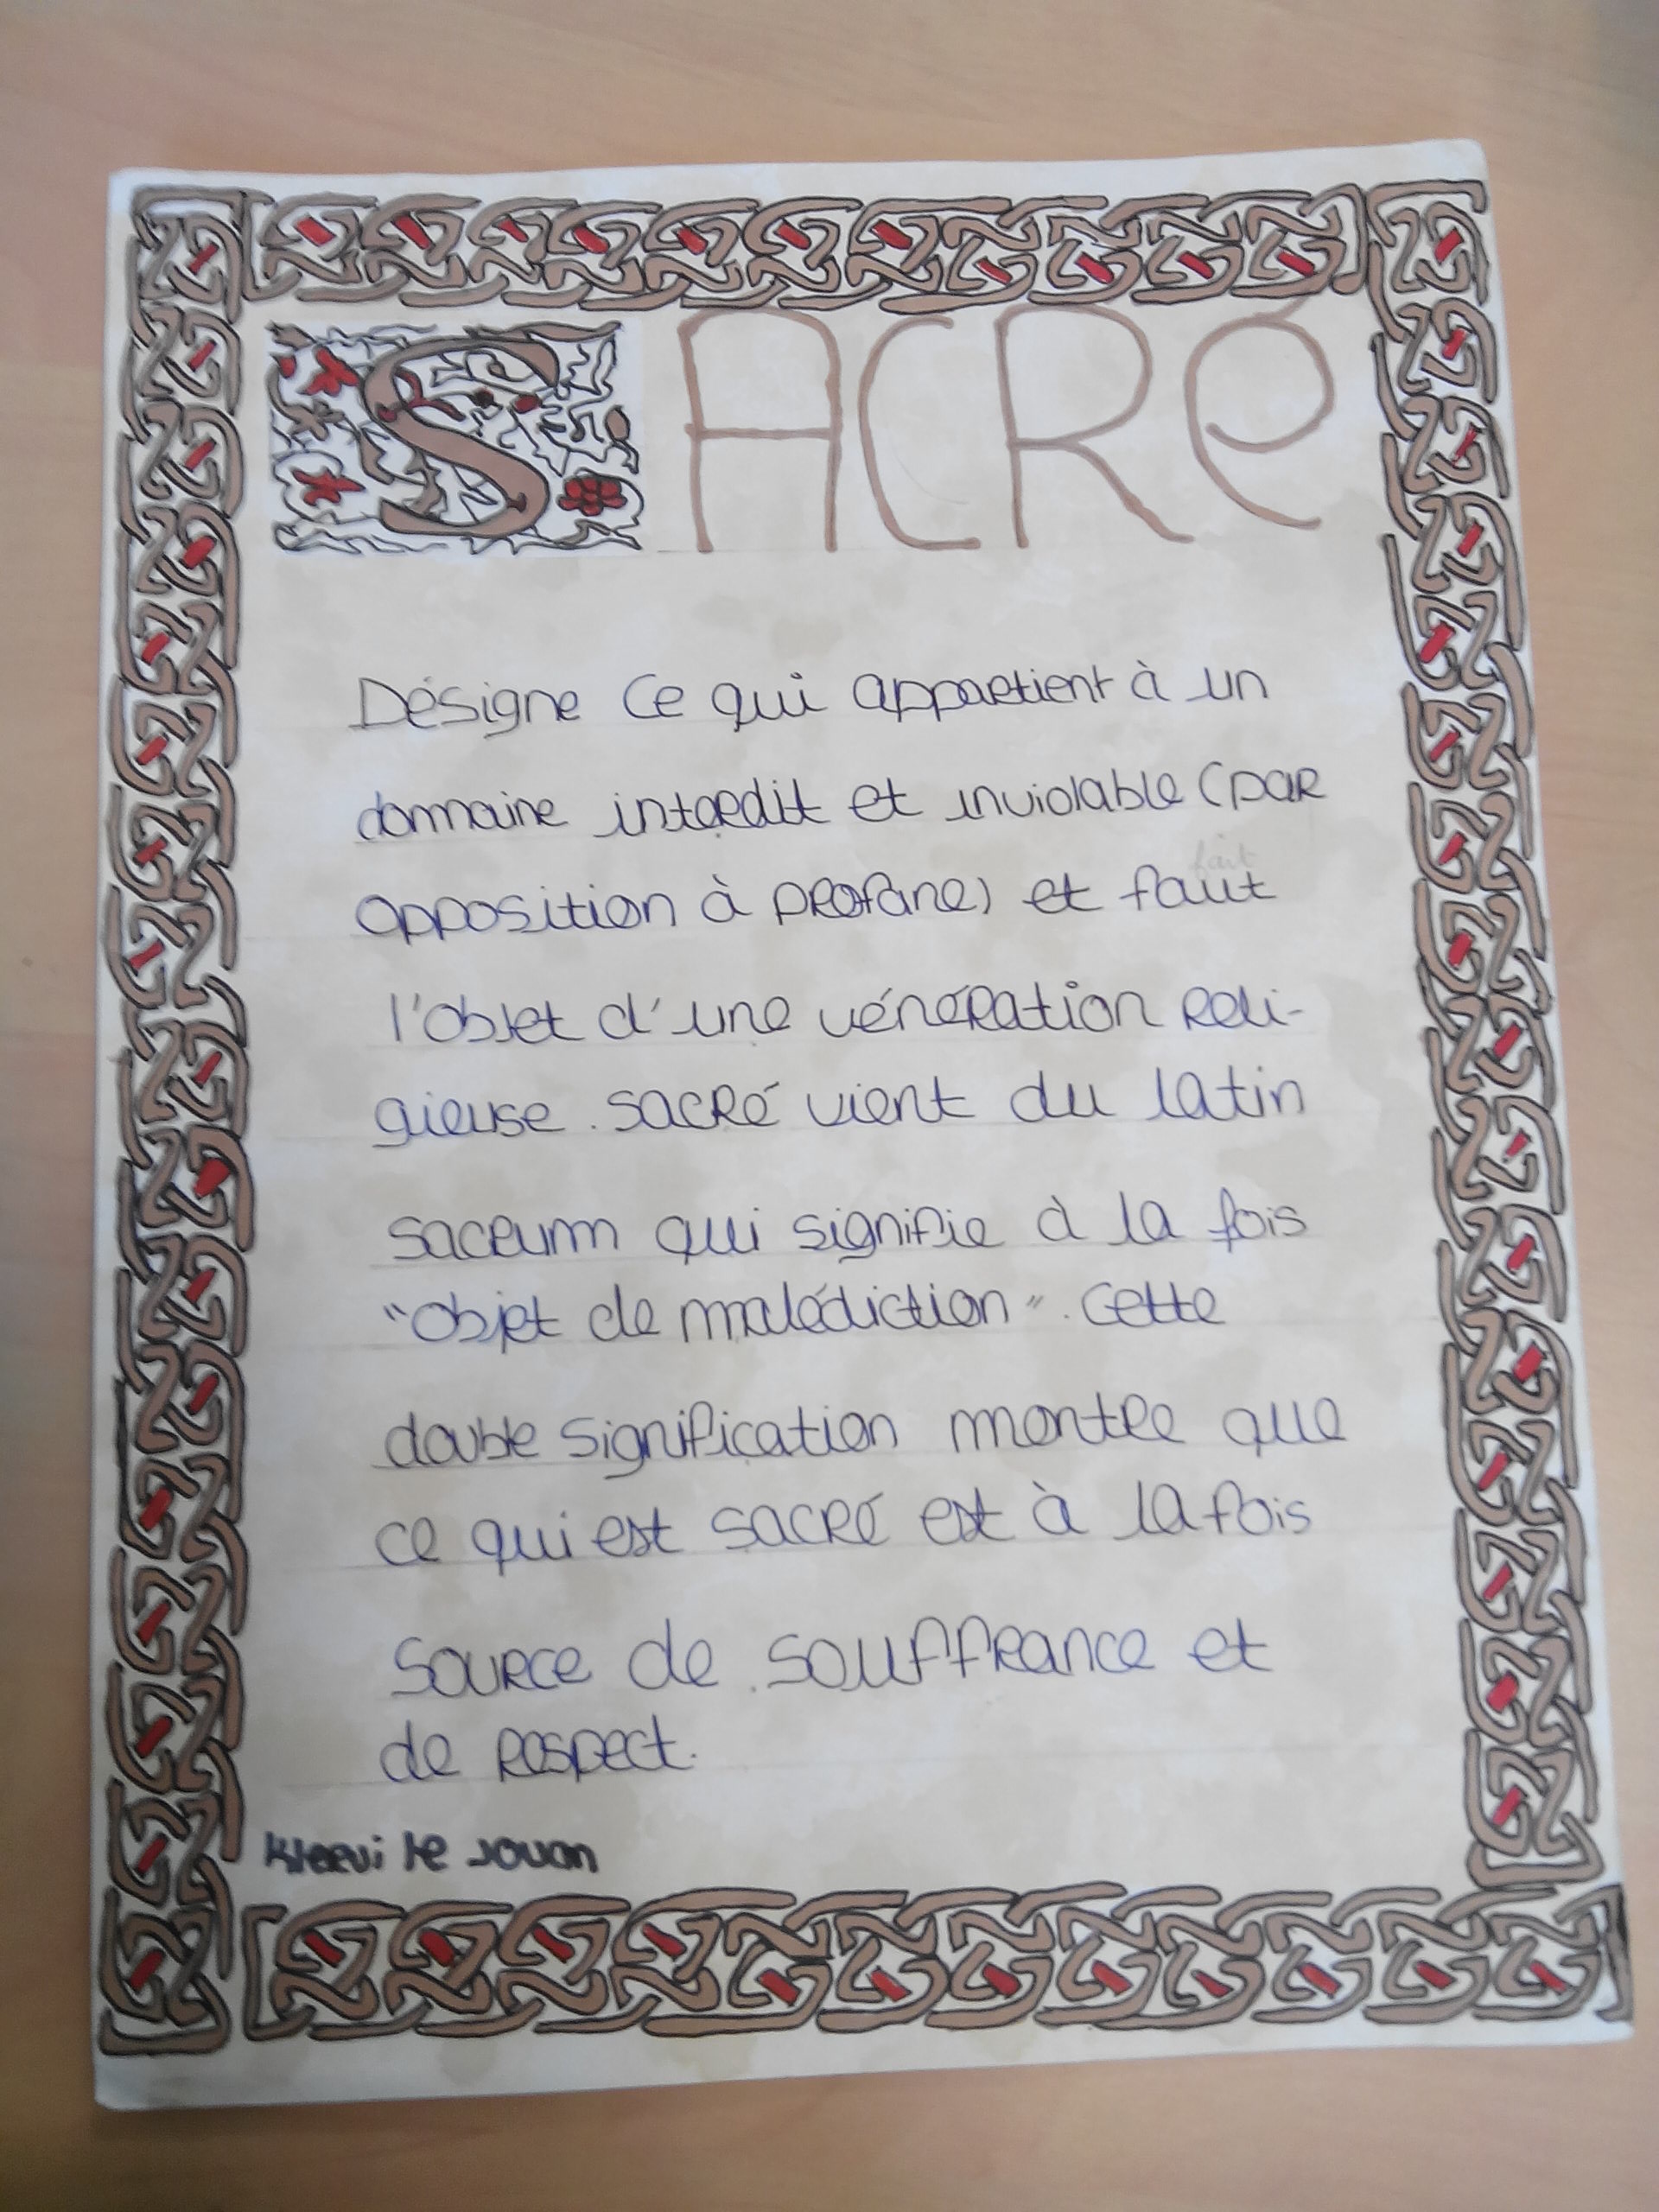 SACRÉ
Désigne ce qui appartient à un
domaine interdit et inviolable (par
fait
opposition à profane) et faut
l'objet d'une vénération reli-
gieuse. sacré vient du latin
sacrum qui signifie à la fois
"objet de malédiction". Cette
double signification montre que
ce qui est sacré est à la fois
source de souffrance et
de respect.
Klervi le Jouan